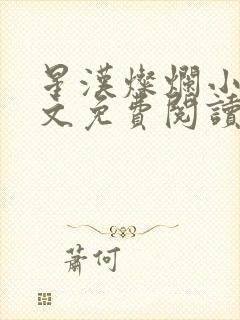 星漢燦爛小
文免費閱讀
蕭何